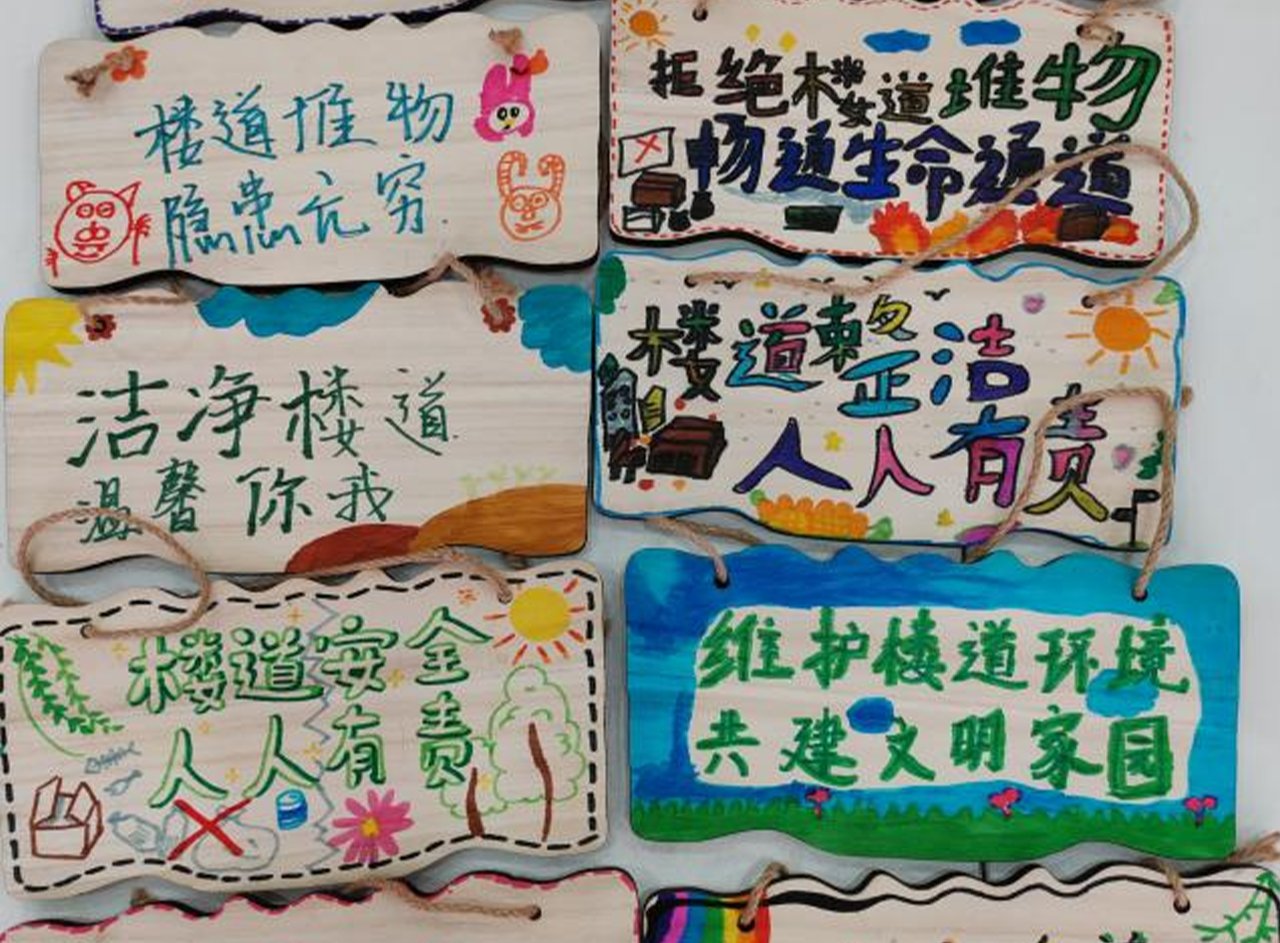 楼道堆物
隐患无穷
拒绝楼道堆物
畅通生命通道
洁净楼道
温馨你我
楼道整洁
人人有责
楼道安全
人人有责
维护楼道环境
共建文明家园